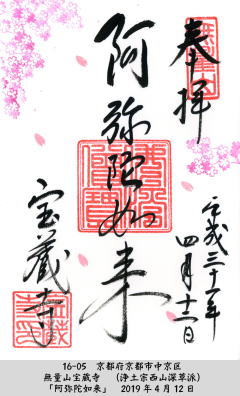 奉拝
阿弥陀如来
平成三十一年
四月十二日
宝蔵寺
16-05 京都府京都市中京区
無量山宝蔵寺 (浄土宗西山深草派)
「阿弥陀如来」 2019年4月12日